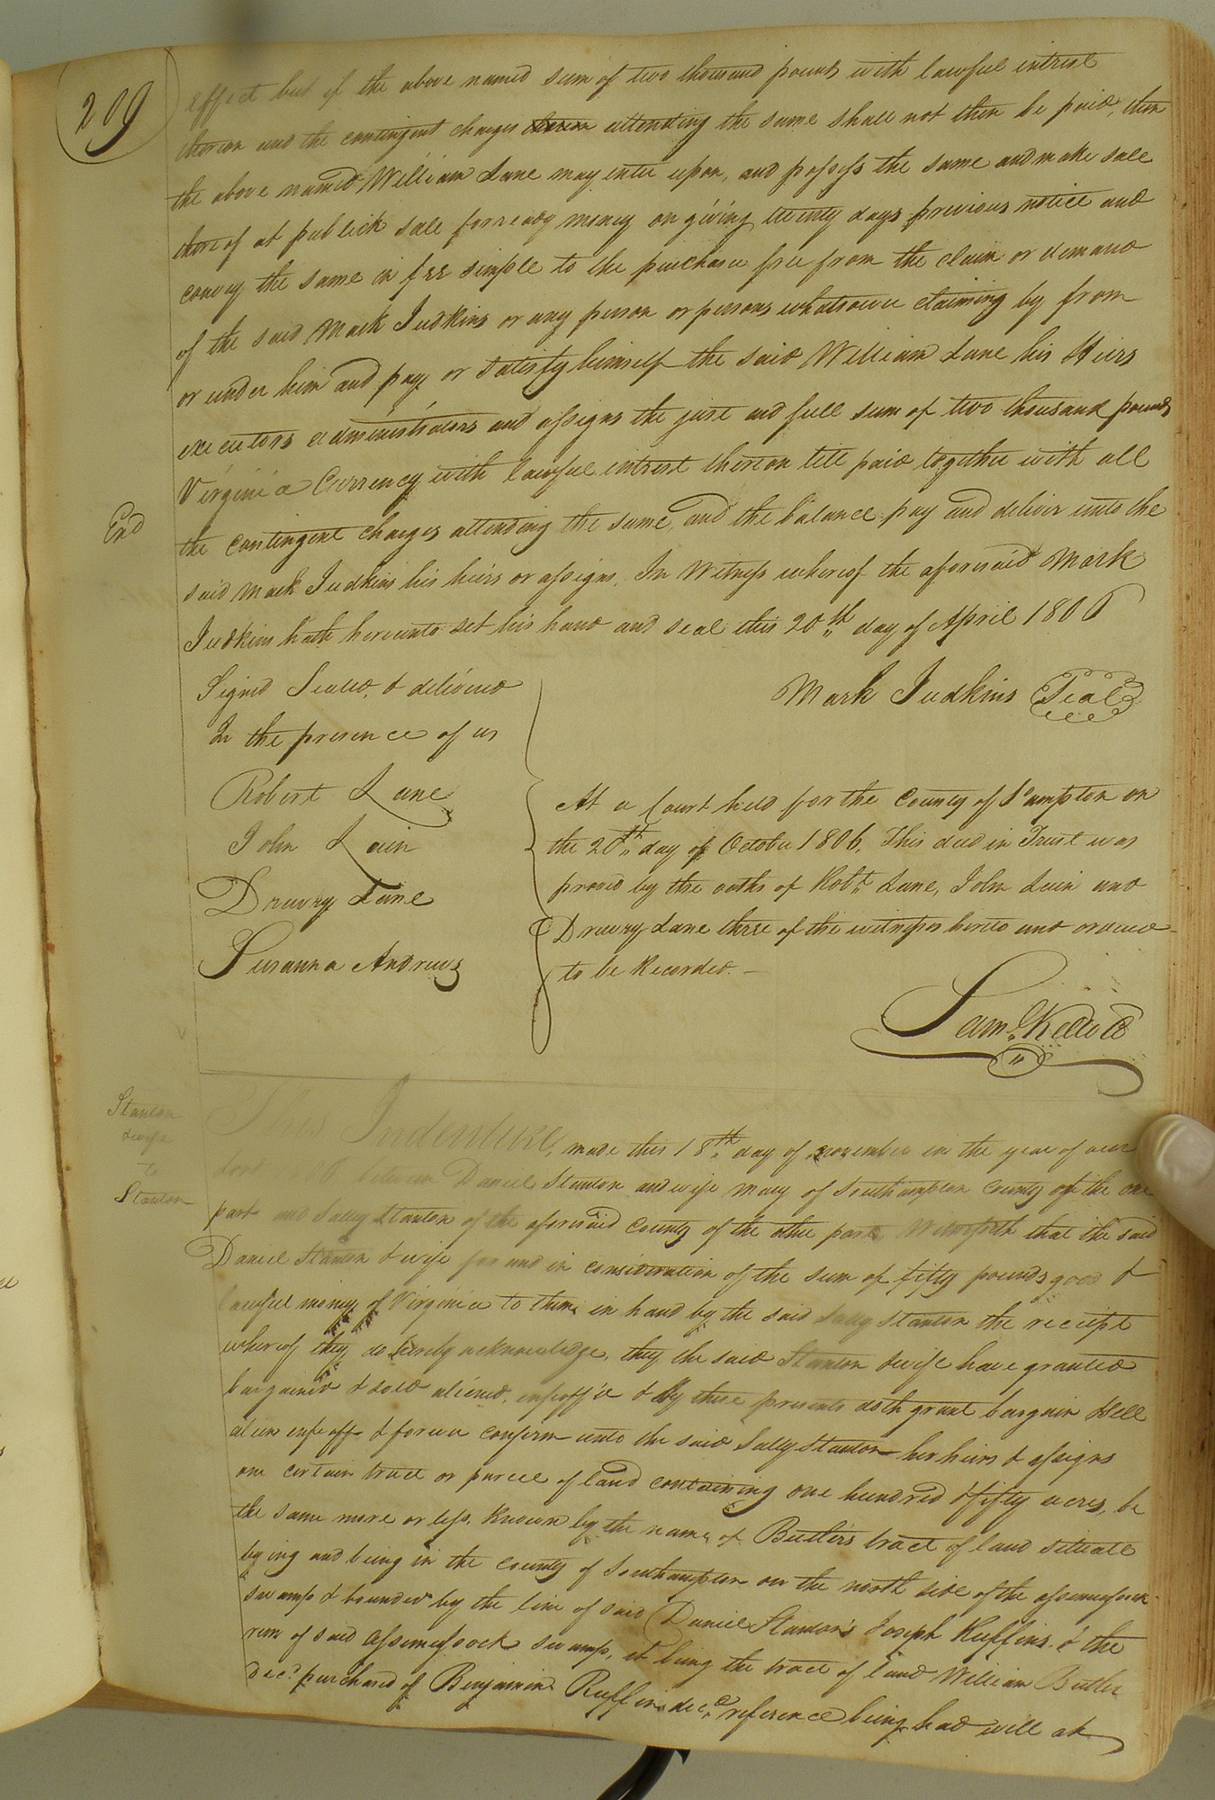 209
effect but if the above named sum of two thousand pounds with lawful intrest
thereon and the contingent charges attending the same shall not then be paid, then
the above named William Lane may enter upon, and possess the same and make sale
thereof at publick sale for ready money on giving twenty days previous notice and
convey the same in fee simple to the purchaser free from the claim or demand
of the said Mark Judkins or any person or persons whatsoever claiming by from
or under him and pay or satisfy himself the said William Lane his Heirs
executors administrators and assigns the just and full sum of two thousand pounds
Virginia Currency with lawful intrest thereon till paid together with all
End
the contingent charges attending the same, and the balance pay and deliver unto the
said Mark Judkins his heirs or assigns. In Witness whereof the aforesaid Mark
Judkins hath hereunto set his hand and seal this 20th day of April 1806
Signed Sealed & delivered
In the presence of us
Robert Lane
John Lain
Drewry Lane
Susanna Andrews
Mark Judkins Seal
At a Court held for the County of S'ampton on
the 20th day of October 1806. This deed in Trust was
proved by the oaths of Robt Lane, John Lain and
Drewry Lane three of the witnesses hereto and ordered
to be Recorded. —
Saml Kello C
Stanton
& wife
to
Stanton
This Indenture, made this 18th day of november in the year of our
Lord between Daniel Stanton and wife Mary of Southampton County of the one
part and Sally Stanton of the aforesaid County of the other part Witnesseth that the said
Daniel Stanton & wife for and in consideration of the sum of fifty pounds good &
lawful money of Virginia to them in hand by the said Sally Stanton the receipt
whereof they do hereby acknowledge, they the said Stanton & wife have granted
bargain'd & sold aliened, enfeoff'd & by these presents doth grant bargain & sell
alien enfeoff & forever confirm unto the said Sally Stanton her heirs & assigns
one certain tract or parcel of land containing one hundred & fifty acres, be
the same more or less, known by the name of Butler's tract of land situate
lying and being in the County of Southampton on the north side of the assamoosock
swamp & bounded by the line of said Daniel Stanton's Joseph Ruffins & the
run of said Assamoosock swamp, it being the tract of land William Butler
Decd purchased of Benjamin Ruffin decd reference being had will at